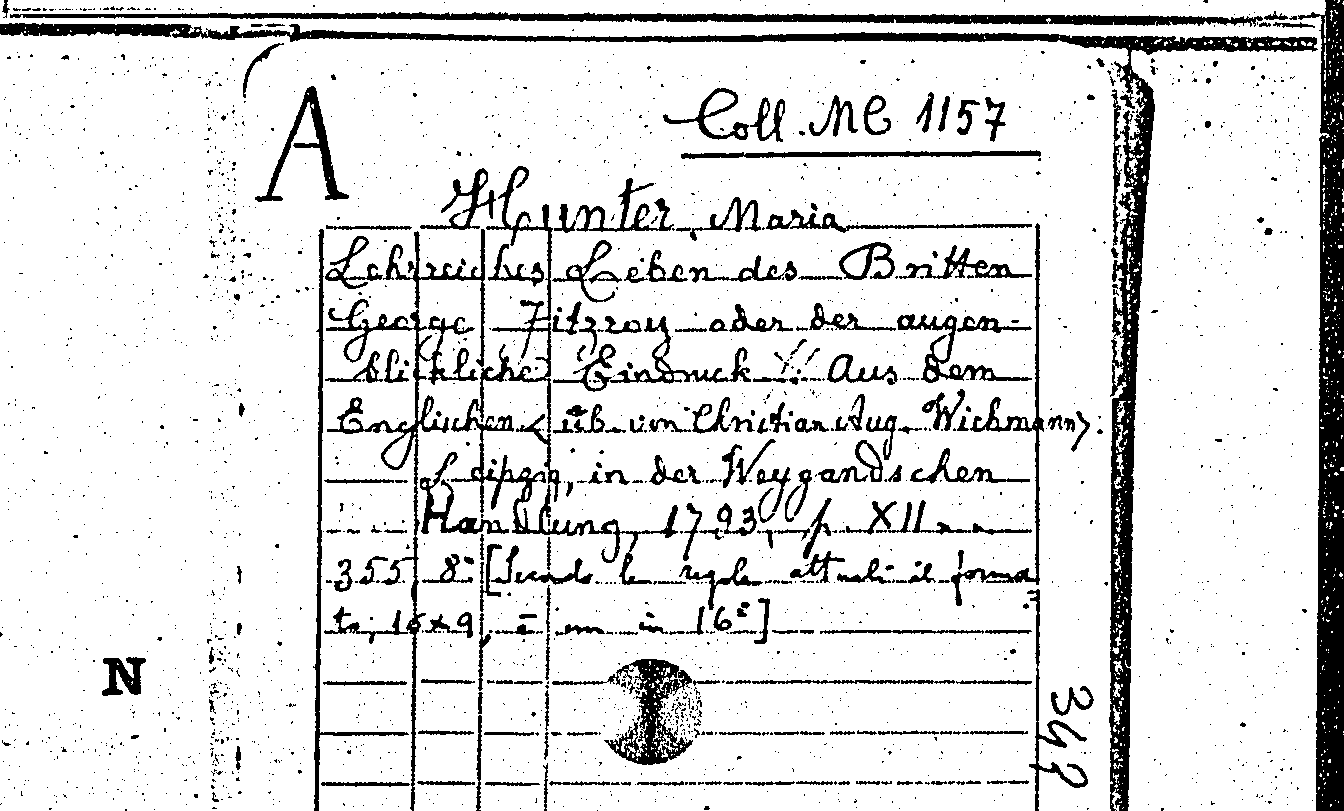 A
Coll. MC 1157
Hunter, Maria
Lehrreiches Leben des Britten
George Fitzroy oder der augen-
blickliche Eindruck !! Aus dem
Englischen < üb. von Christian Aug. Wichmann>.
Leipzig, in der Weygandschen
Handlung, 1793, p. XII..
355, 8° [Secondo le regole attuali il forma=
to, 16x9, è un in 16°]
N
342